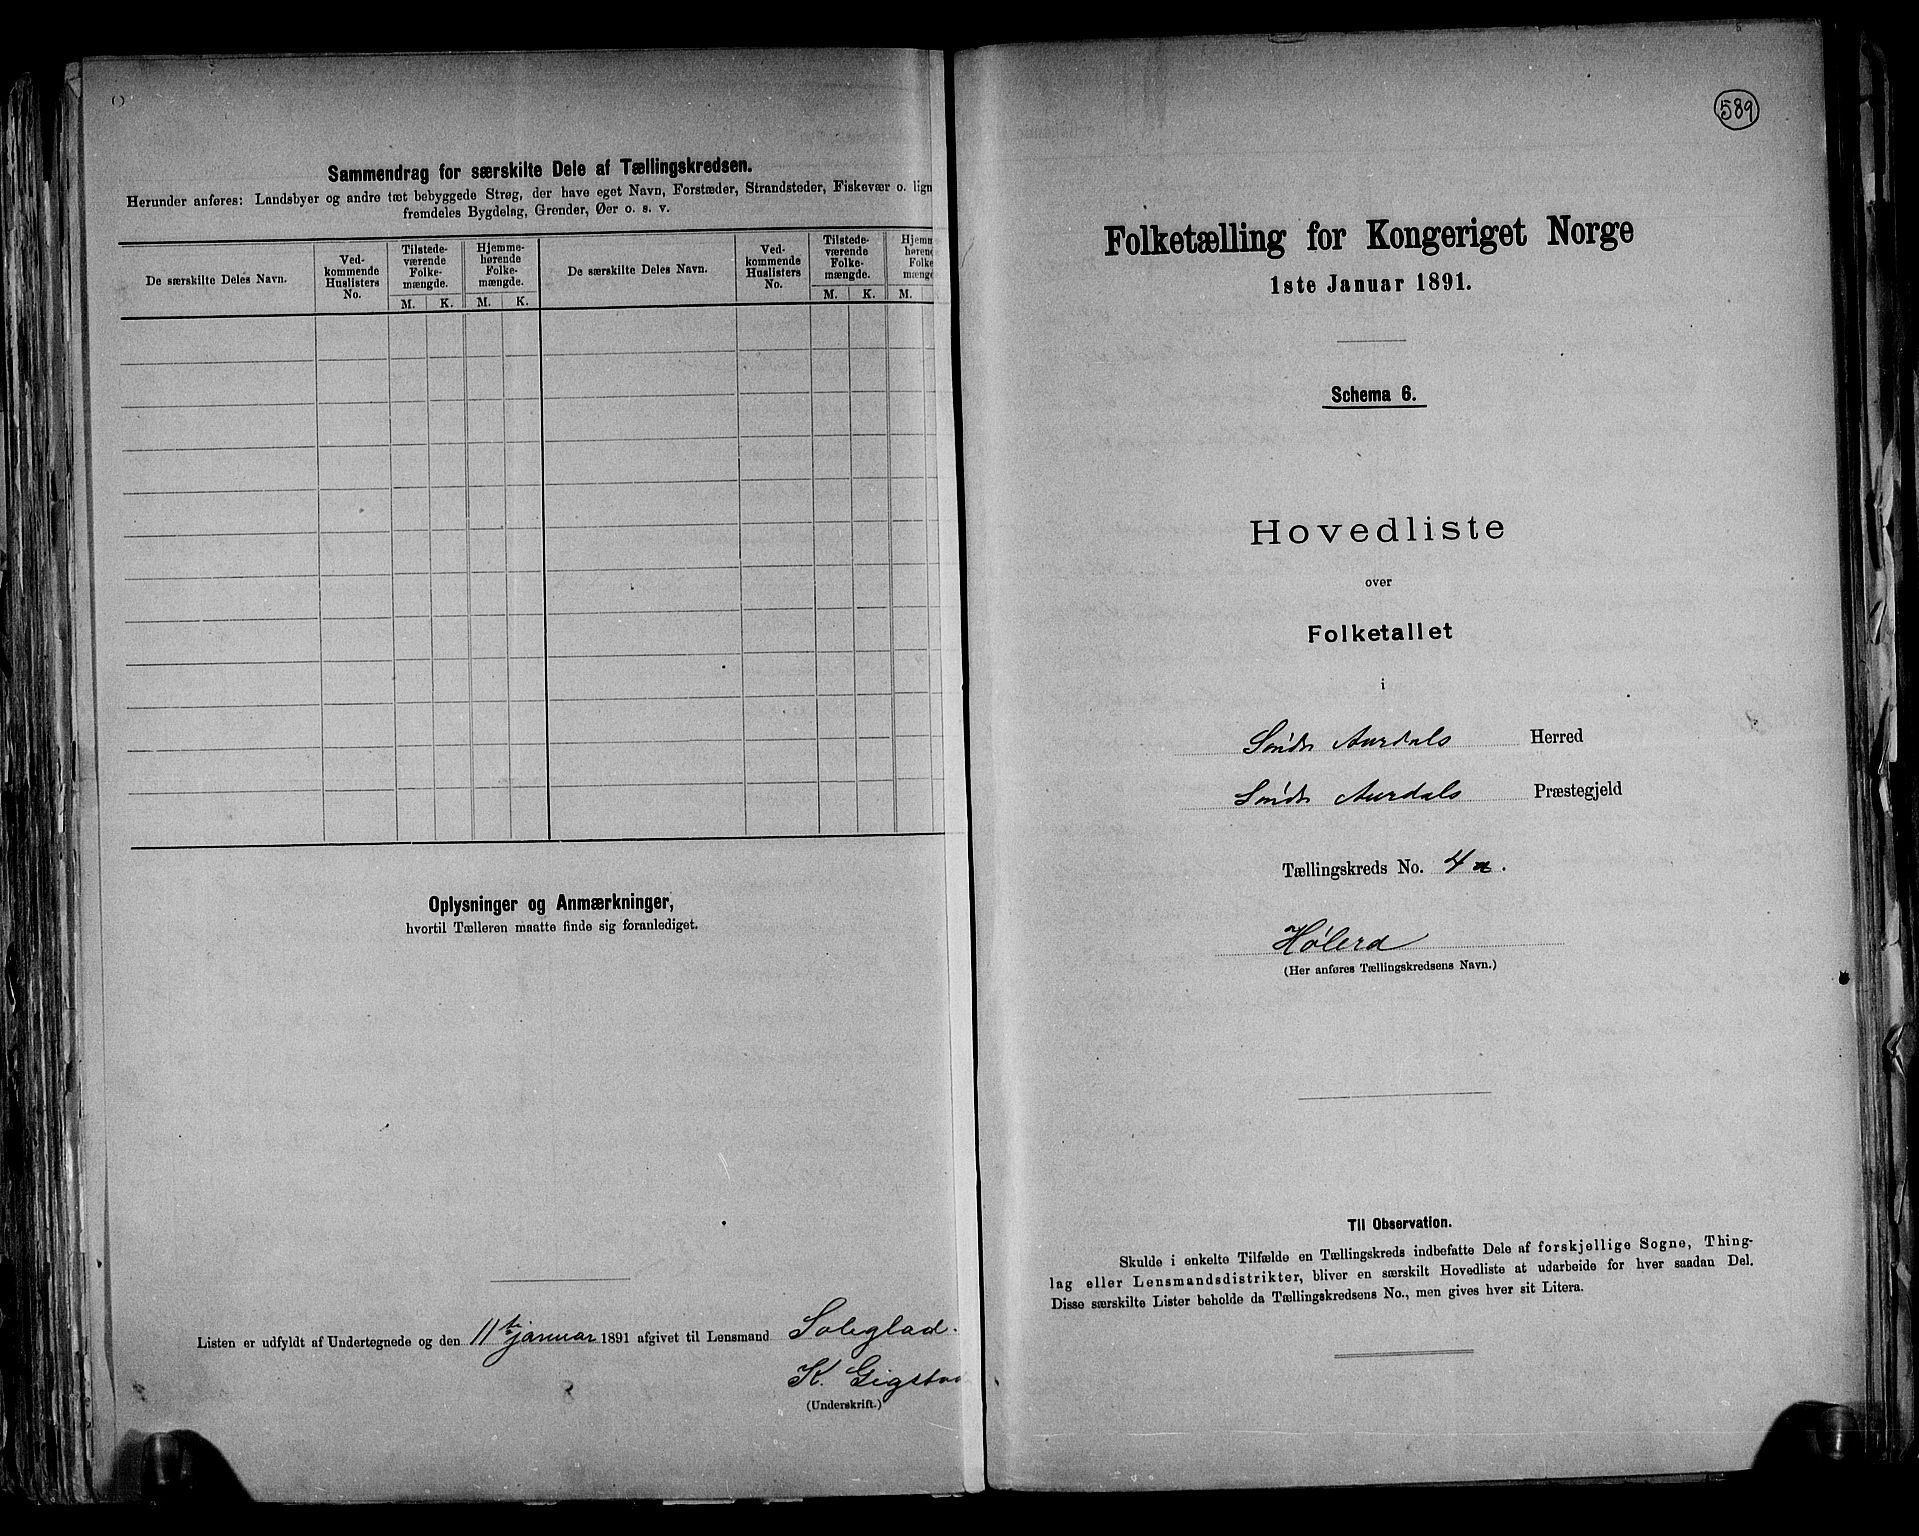 Sammendrag for særskilte Dele af Tællingskredsen.
Herunder anføres: Landsbyer og andre tæt bebyggede Strøg, der have eget Navn, Forstæder, Strandsteder, Fiskevær o. lign
fremdeles Bygdelag, Grender, Øer o. s. v.
De særskilte Deles Navn.
Ved-
kommende
Huslisters
No.
Tilstede-
værende
Folke-
mængde.
M. K.
Hjemme-
hørende
Folke-
mængde.
M. K.
De særskilte Deles Navn.
Ved-
kommende
Huslisters
No.
Tilstede-
værende
Folke-
mængde.
M. K.
Hjemm
høren
Folke
mængd
M.
Oplysninger og Anmærkninger,
hvortil Tælleren maatte finde sig foranlediget.
Listen er udfyldt af Undertegnede og den 11te januar 1891 afgivet til Lensmand Soleglad.
K. Gigstad
(Underskrift.)
589
Folketælling for Kongeriget Norge
1ste Januar 1891.
Schema 6.
Hovedliste
over
Folketallet
i
Søndr Aurdals Herred
Søndr Aurdals Præstegjeld
Tællingskreds No. 4a.
Hølera
(Her anføres Tællingskredsens Navn.)
Til Observation.
Skulde i enkelte Tilfælde en Tællingskreds indbefatte Dele af forskjellige Sogne, Thing-
lag eller Lensmandsdistrikter, bliver en særskilt Hovedliste at udarbeide for hver saadan Del.
Disse særskilte Lister beholde da Tællingskredsens No., men gives hver sit Litera.